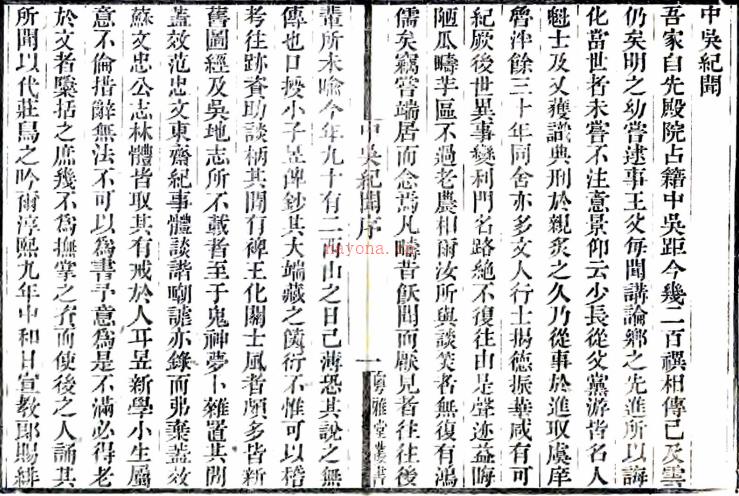 中吳紀聞
吾家自先殿院占籍中吳距今幾二百禩相傳已及雲
仍矣明之幼嘗逮事王父每聞講論鄉之先進所以誨
化當世者未嘗不注意景仰云少長從父黨游皆名人
魁士及又獲識典刑於親炙之久乃從事於進取虞庠
魯泮餘三十年同舍亦多文人行士揚德振華咸有可
紀厥後世異事變利門名路絶不復往由是聲迹益晦
陋瓜疇芋區不過老農相爾汝所與談笑者無復有鴻
儒矣竊嘗端居而念焉凡疇昔飫聞而厭見者往往後
中吳紀聞序
一
粤雅堂叢書
輩所未喻今年九十有二西山之日已薄恐其說之無
傳也口授小子昱俾鈔其大端藏之篋衍不惟可以稽
考往跡資助談柄其間有裨王化關士風者頗多皆新
舊圖經及吳地志所不載者至于鬼神夢卜雜置其間
蓋效范忠文東齋紀事體談諧嘲謔亦錄而弗棄蓋效
蘇文忠公志林體皆取其有戒於人耳昱新學小生屬
意不倫措辭無法不可以為書予意為是不滿必得老
於文者櫽括之庶幾不為撫掌之資而使後之人誦其
所聞以代莊舄之吟爾淳熙九年中和日宣教郎賜緋
nayona.cn